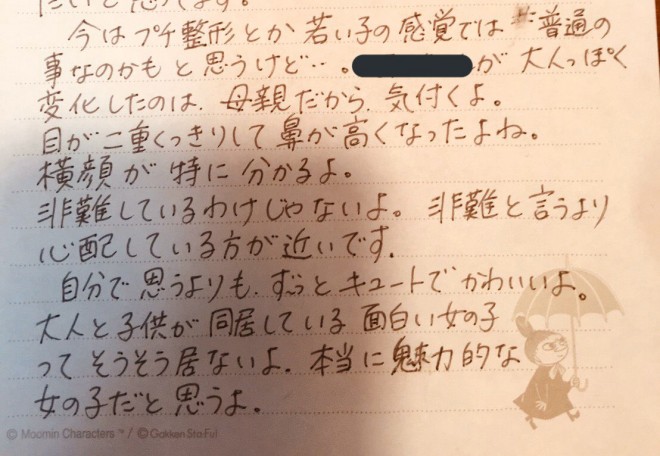 たいと思ってます。
今はプチ整形とか若い子の感覚では普通の
事なのかもと思うけど‥。が大人っぽく
変化したのは、母親だから、気付くよ。
目が二重くっきりして鼻が高くなったよね。
横顔が特に分かるよ。
非難しているわけじゃないよ。非難と言うより
心配している方が近いです。
自分で思うよりも、ずっとキュートでかわいいよ。
大人と子供が同居している面白い女の子
ってそうそう居ないよ、本当に魅力的な
女の子だと思うよ。
© Moomin Characters ™ / © Gakken Sta:Ful